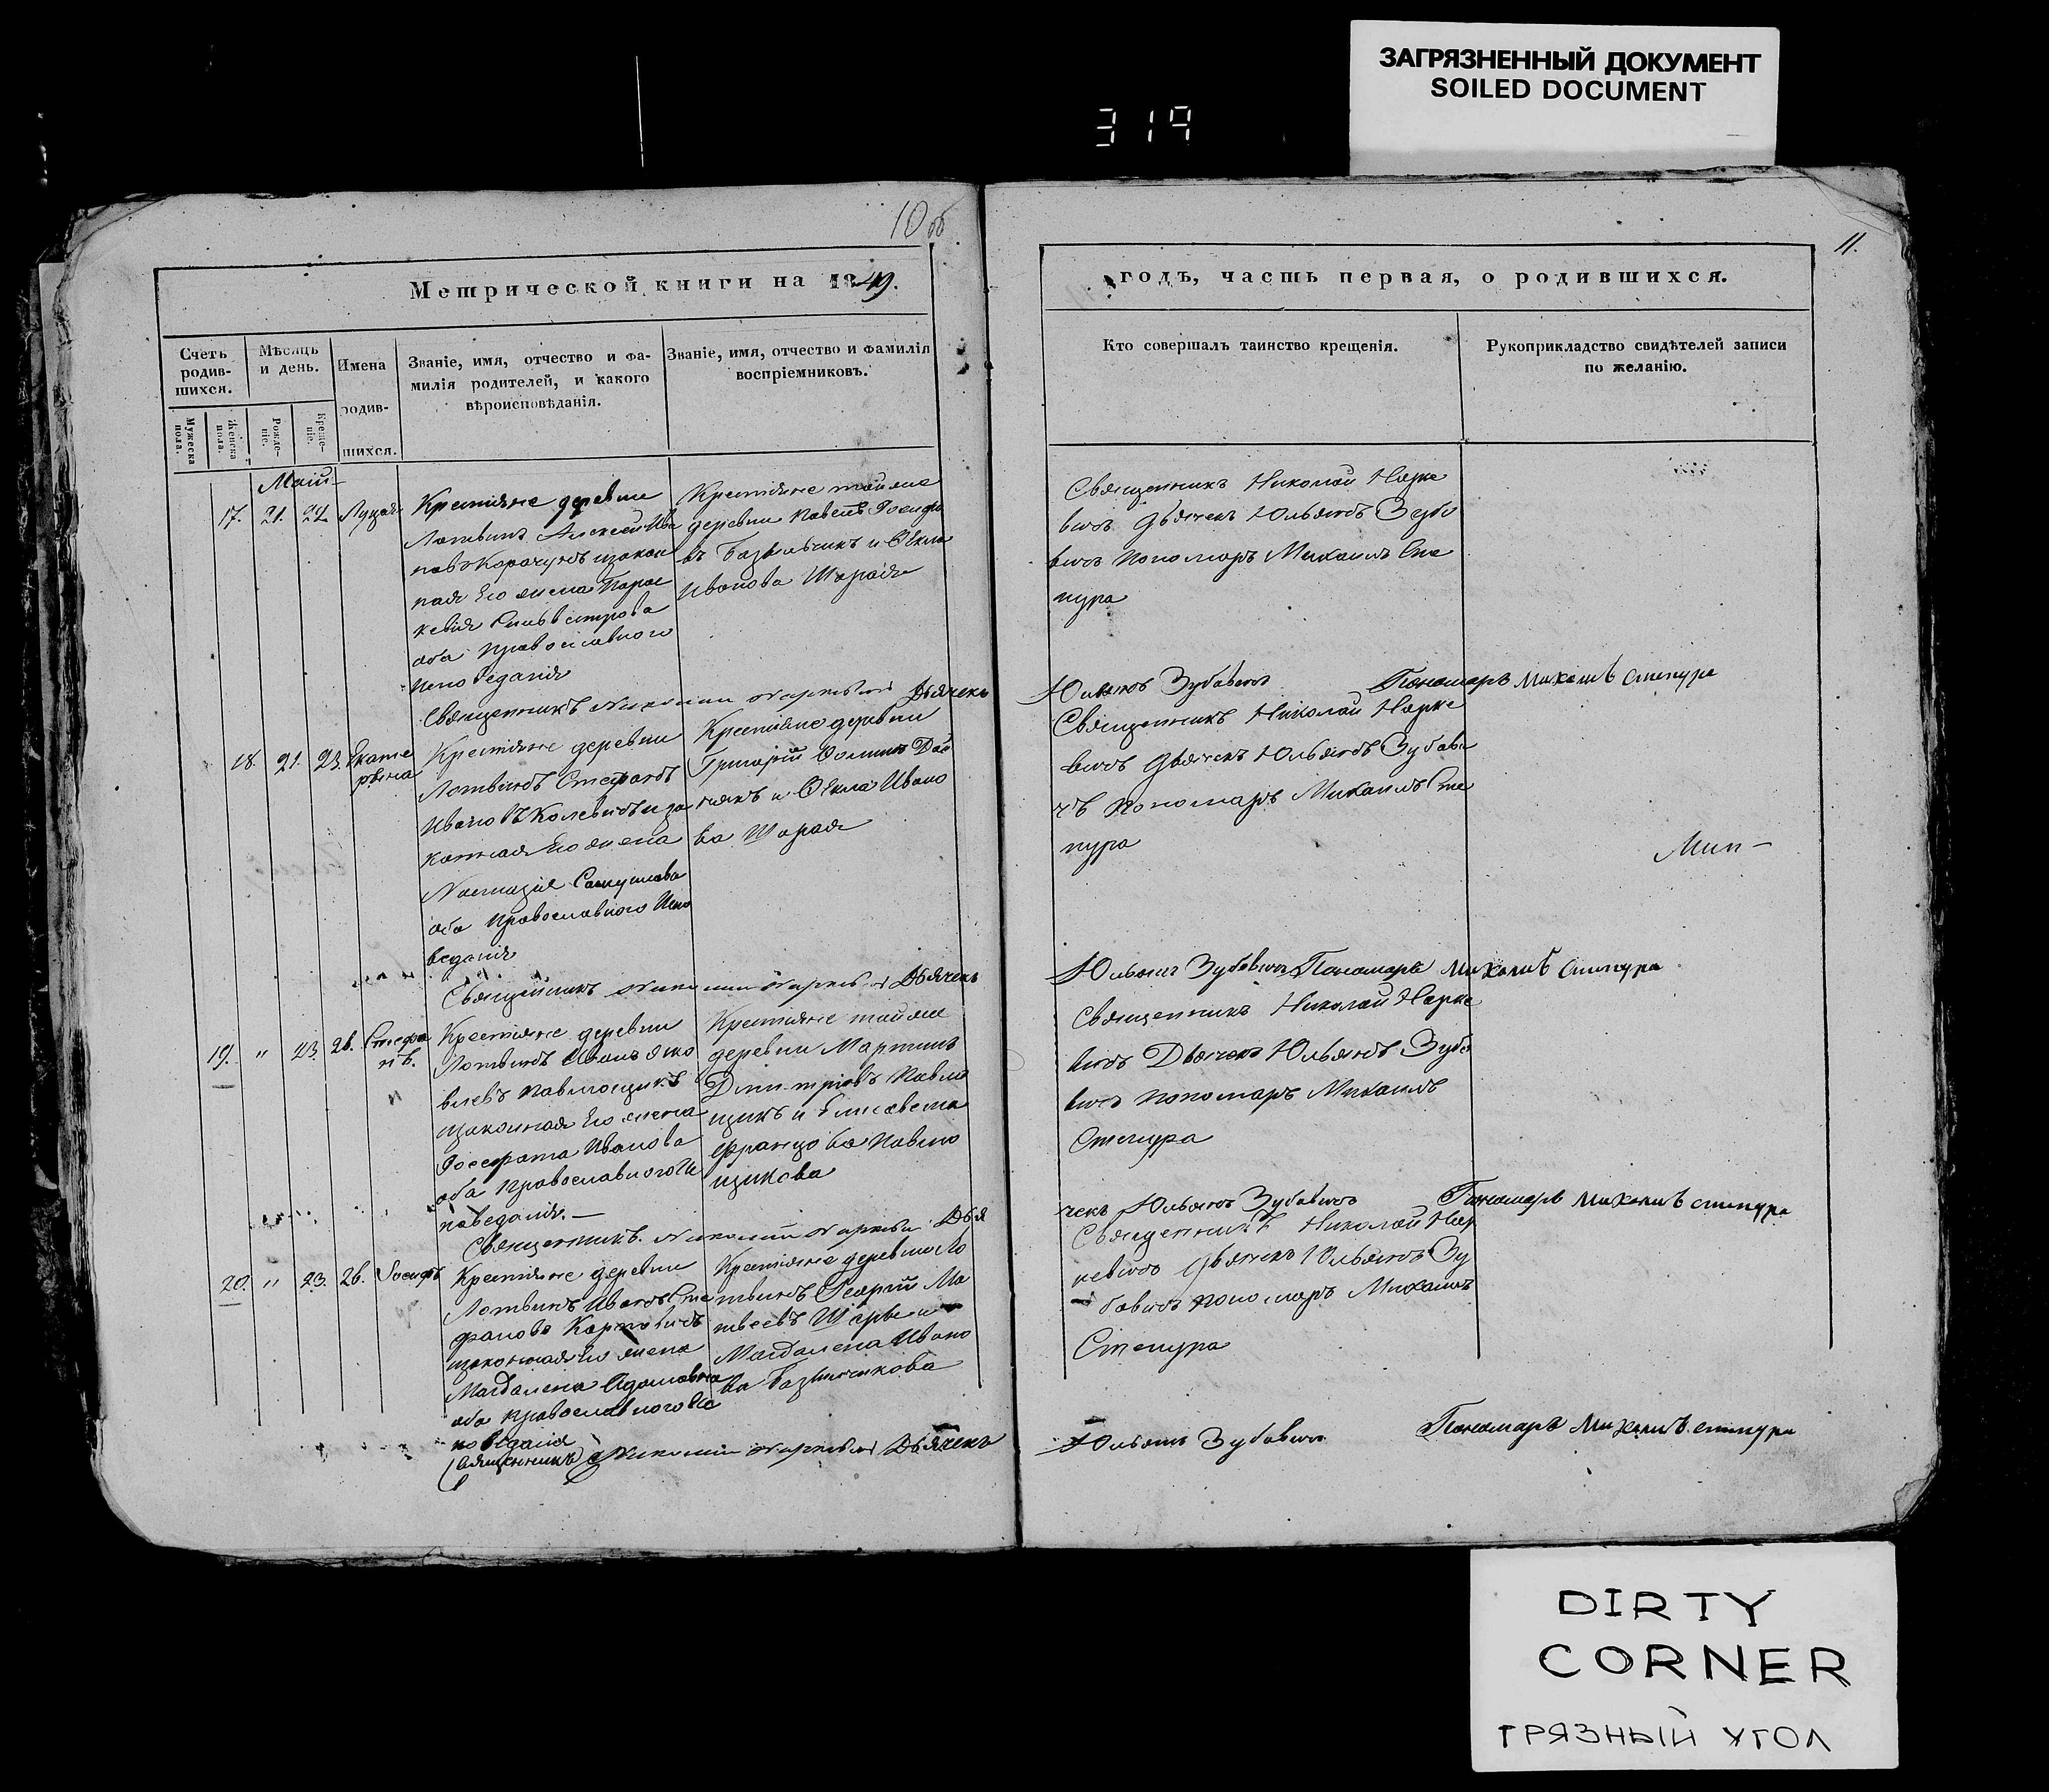 ЗАГРЯЗНЕННЫЙ ДОКУМЕНТ
SOILED DOCUMENT
319
10 об
11.
Метрической книги на 1849.
годъ, часть первая, о родившихся.
Счетъ родив-шихся.
Мѣсяцъ и день.
Имена родив-шихся.
Званіе, имя, отчество и фа-
милія родителей, и какого
вѣроисповѣданія.
Званіе, имя, отчество и фамилія
воспріемниковъ.
Кто совершалъ таинство крещенія.
Рукоприкладство свидѣтелей записи
по желанію.
Мужеска пола.
Женска пола.
Рожде-ніе.
Креще-ніе.
Май
17. 21. 22
Крестьяне деревни
Лотвинъ Алексей Ива
новъ Корачунъ изакон
ная Его жена Парас
кевія Сильвестрова
оба православного
исповеданія
Крестьяне тойже
деревни Павелъ Иосифо
въ Базыльчикъ и Фекла
Иванова Шарая
Священникъ Николай Нарке
вичъ дьячекъ Юльянъ Зубо
вичъ пономарь Михаилъ Сте
пура
Священникъ Николай Наркевичъ Дьячекъ
Юльянъ Зубовичъ Пономарь Михаилъ Степура
18. 21. 23. Екате
рина
Крестьяне деревни
Лотвинъ Стефанъ
Ивановъ Колевичъ иза
конная Его жена
Настазія Самуилова
оба православного Испо
веданія
Крестьяне деревни
Григорій Фоминъ Дай
някъ и Фекла Ивано
ва Шарая
Священникъ Николай Нарке
вичъ дьячекъ Юльянъ Зубови
чъ пономарь Михаилъ Сте
пура
Священникъ Николай Наркевичъ Дьячекъ
Юльянъ Зубовичъ Пономарь Михаилъ Степура
19. " 23. 26. Стефа
нъ.
Крестьяне деревни
Лотвинъ Иванъ Яко
влевъ Павлющикъ
изаконная Его жена
Иосефата Иванова
оба православного Ис
поведанія.—
Крестьяне тойже
деревни Мартинъ
Дмитріевъ Павлю
щикъ и Елисавета
Францова Павлю
щикова
Священникъ Николай Нарке
вичъ Дьячекъ Юльянъ Зубо
вичъ пономарь Михаилъ
Степура
Священникъ Николай Наркевичъ Дья
чекъ Юльянъ Зубовичъ Пономарь Михаилъ Степура
20. " 23. 26. Иосифъ
Крестьяне деревни
Лотвинъ Иванъ Сте
фановъ Карповичъ
изаконная Его жена
Магдалена Адамовна
оба православного Ис
поведанія
Крестьяне деревни Ло
твинъ Георгій Ма
твеевъ Шарый и
Магдалена Ивано
ва Базыльчикова
Священникъ Николай Нар
кевичъ дьячекъ Юльянъ Зу
бовичъ пономарь Михаилъ
Степура
Священникъ Николай Наркевичъ Дьячекъ
Юльянъ Зубовичъ Пономарь Михаилъ Степура
DIRTY
CORNER
ГРЯЗНЫЙ УГОЛ